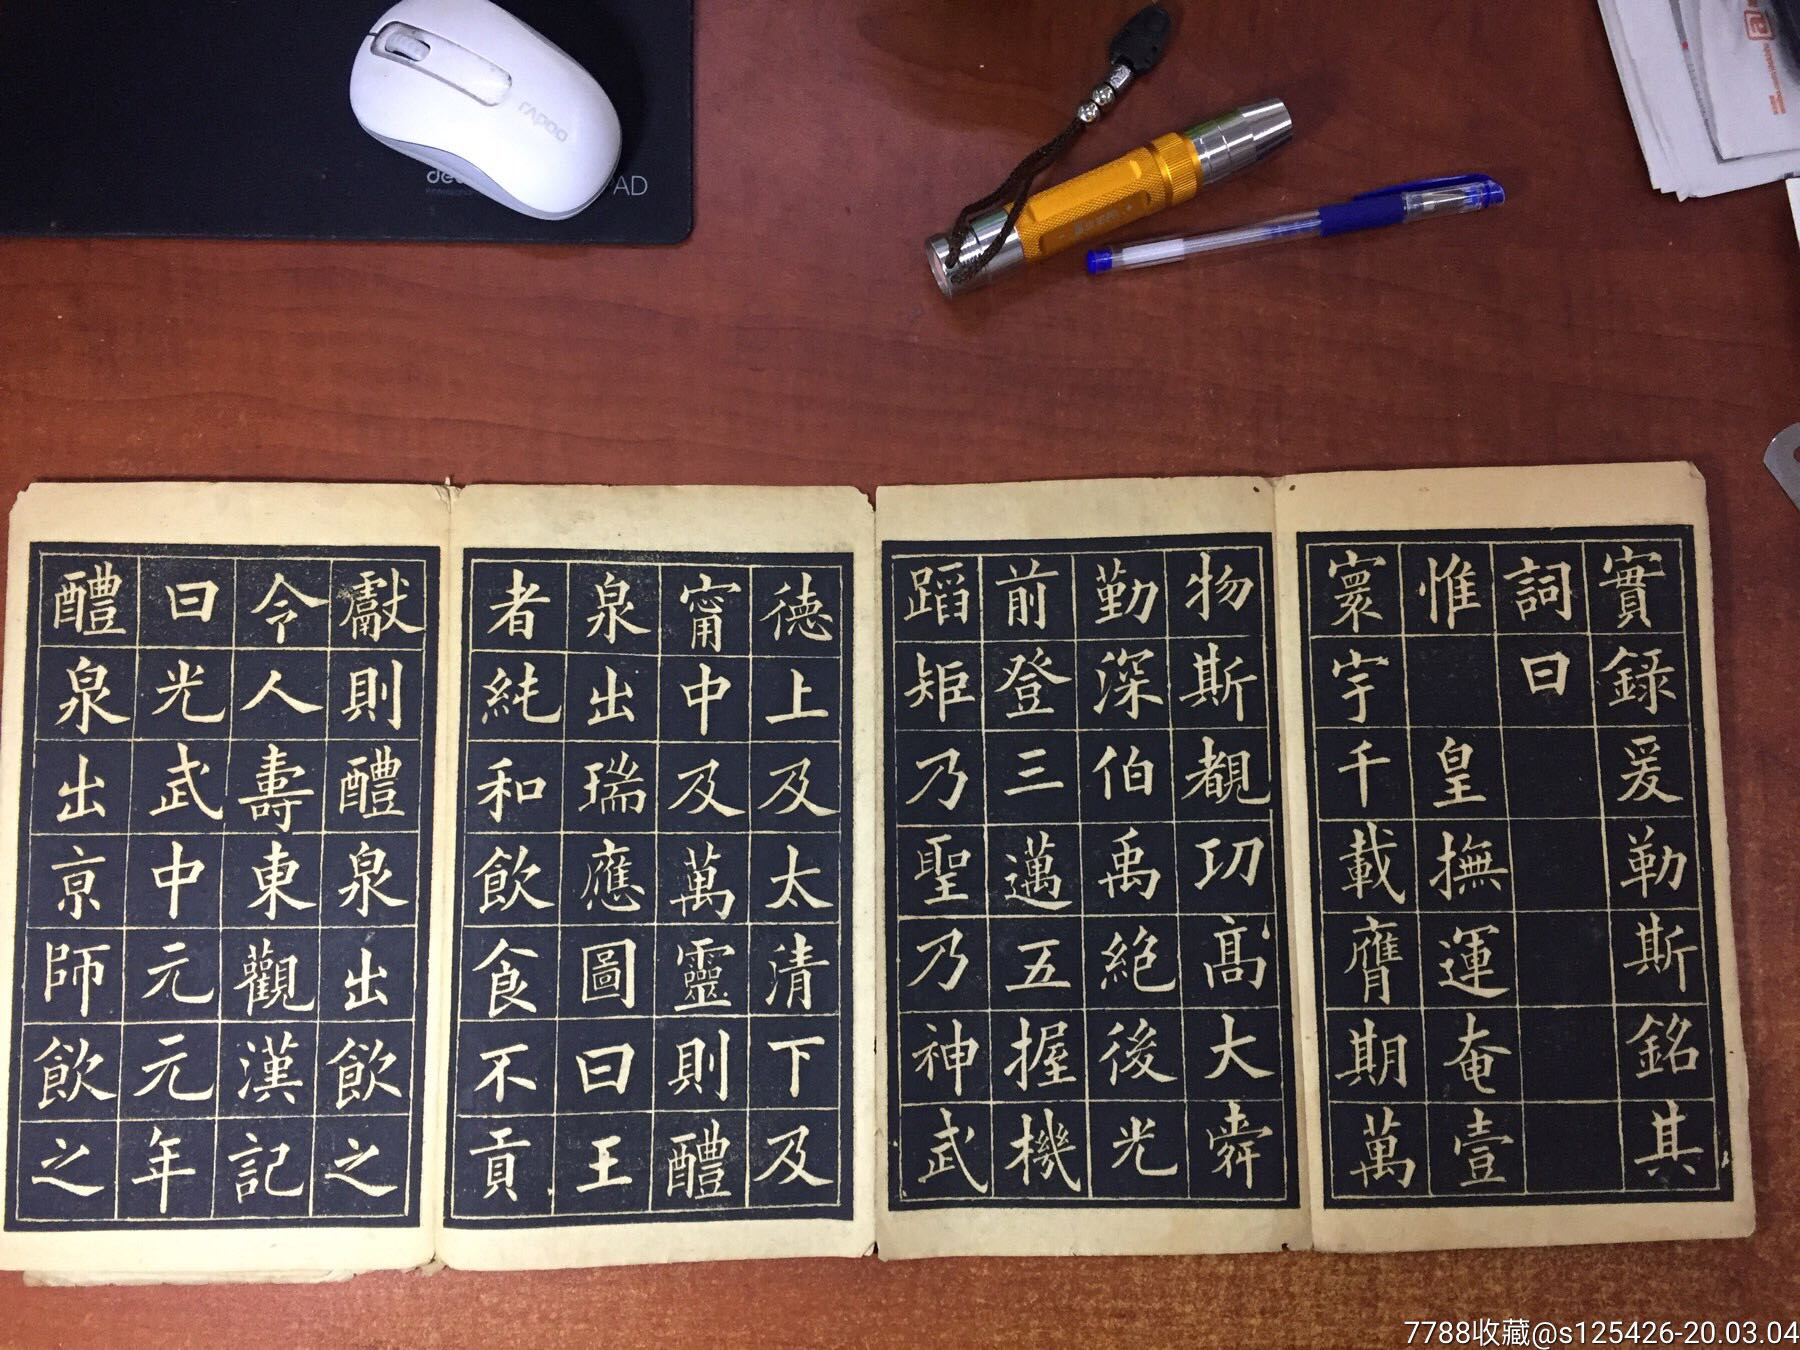 實錄爰勒斯銘其
詞曰
惟皇撫運奄壹
寰宇千載膺期萬
物斯覩功髙大舜
勤深伯禹絕後光
前登三邁五握機
蹈矩乃聖乃神武
德上及太清下及
甯中及萬靈則醴
泉出瑞應圖曰王
者純和飲食不貢
獻則醴泉出飲之
令人壽東觀漢記
曰光武中元元年
醴泉出亰師飲之
rapoo
PAD
7788收藏@s125426-20.03.04